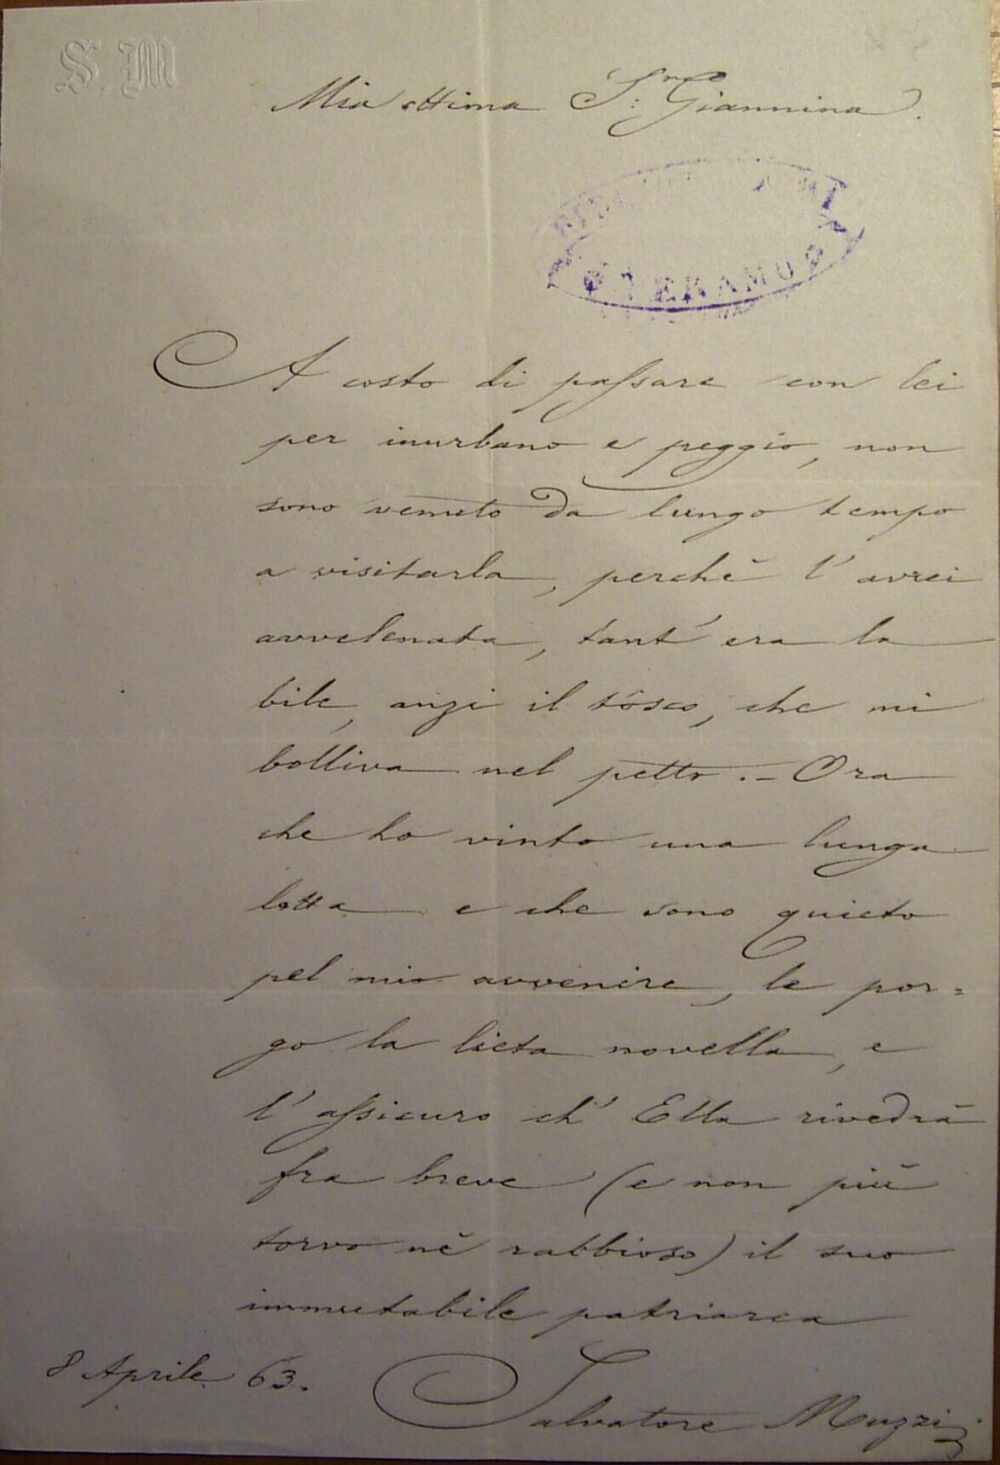 S. M
Mia ottima S.ra Giannina.
TERAMO
A costo di passare con lei
per inurbano e peggio, non
sono venuto da lungo tempo
a visitarla, perchè l' avrei
avvelenata, tant' era la
bile, anzi il tòsco, che mi
bolliva nel petto. – Ora
che ho vinto una lunga
lotta e che sono quieto
pel mio avvenire, le por=
go la lieta novella, e
l' assicuro ch' Ella rivedrà
fra breve (e non più
torvo nè rabbioso) il suo
immutabile patriarca
8 Aprile 63.
Salvatore Muzzi